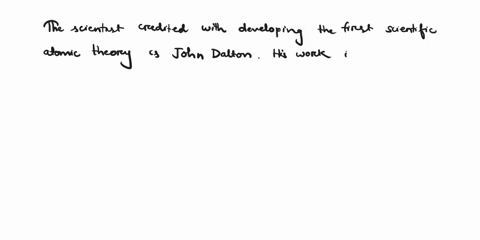 The scientist credited with developing the first scientific
atomic theory is John Dalton. His work i